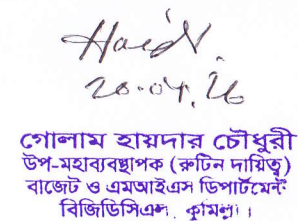 20.04.26
গোলাম হায়দার চৌধুরী
উপ-মহাব্যবস্থাপক (রুটিন দায়িত্ব)
বাজেট ও এমআইএস ডিপার্টমেন্ট
বিজিডিসিএল, কুমিল্লা।